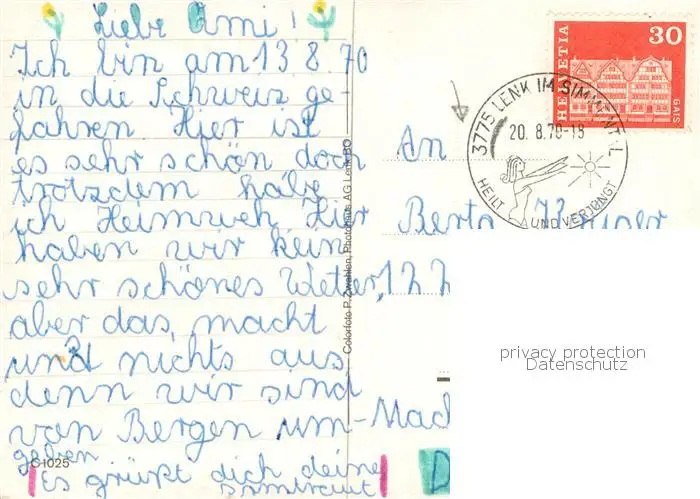 Liebe Ami!
Ich bin am 13.8.70
in die Schweiz ge-
fahren Hier ist
es sehr schön doch
trotzdem habe
ich Heimweh Hier
haben wir kein
sehr schönes Wetter,
aber das, macht
und nichts aus
denn wir sind
van Bergen um-
geben
Es grüßt dich deine
C 1025
Colorfoto P. Zwahlen, Photohaus AG Lenk BO
HELVETIA
30
GAIS
3775 LENK IM SIMMENTAL
20.8.70-18
HEILT UND VERJÜNGT
An
Berta
privacy protection
Datenschutz